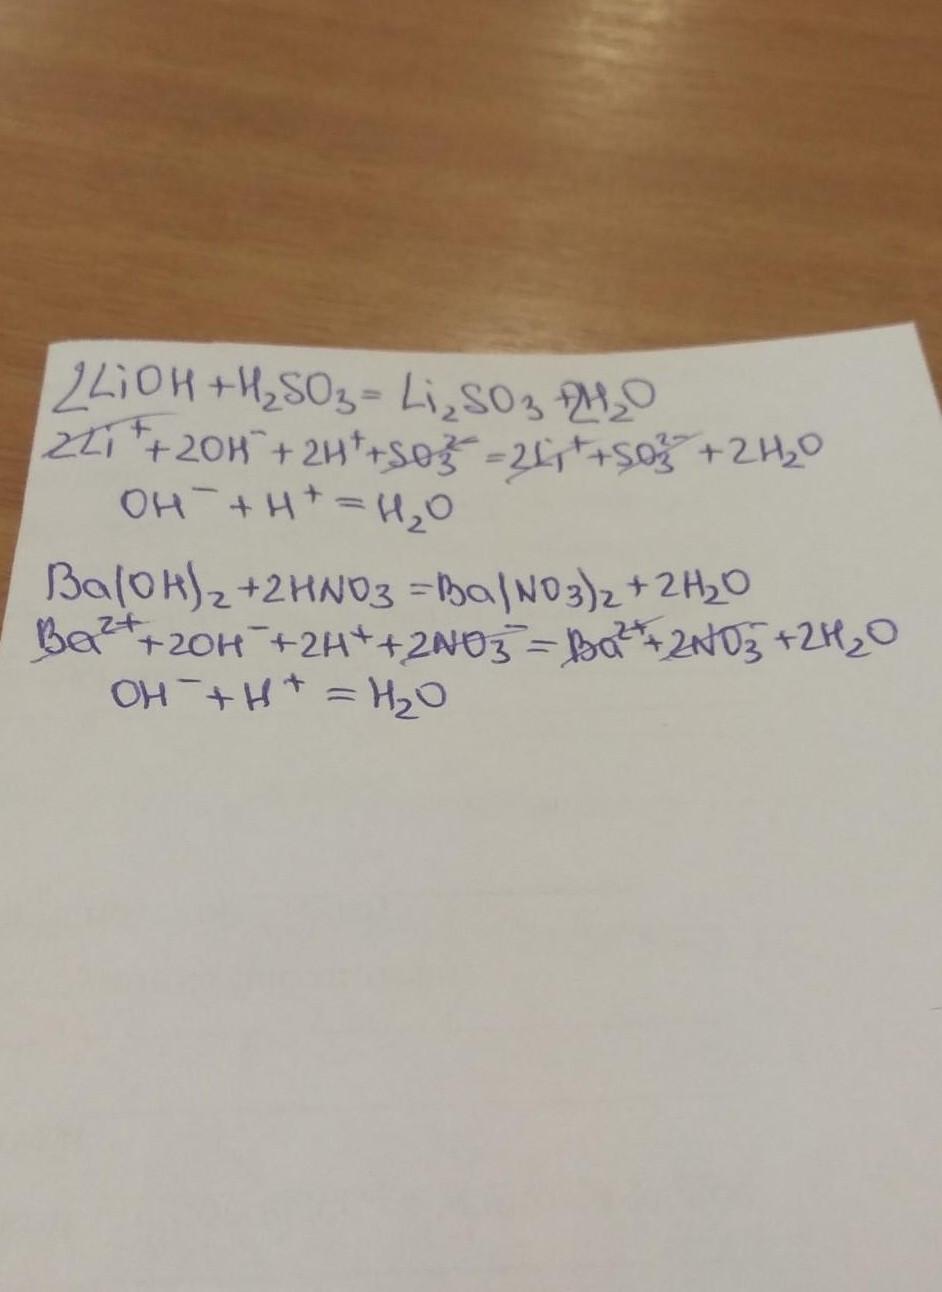 2LiOH + H₂SO₃ = Li₂SO₃ + 2H₂O
2Li⁺ + 2OH⁻ + 2H⁺ + SO₃²⁻ = 2Li⁺ + SO₃²⁻ + 2H₂O
OH⁻ + H⁺ = H₂O
Ba(OH)₂ + 2HNO₃ = Ba(NO₃)₂ + 2H₂O
Ba²⁺ + 2OH⁻ + 2H⁺ + 2NO₃⁻ = Ba²⁺ + 2NO₃⁻ + 2H₂O
OH⁻ + H⁺ = H₂O